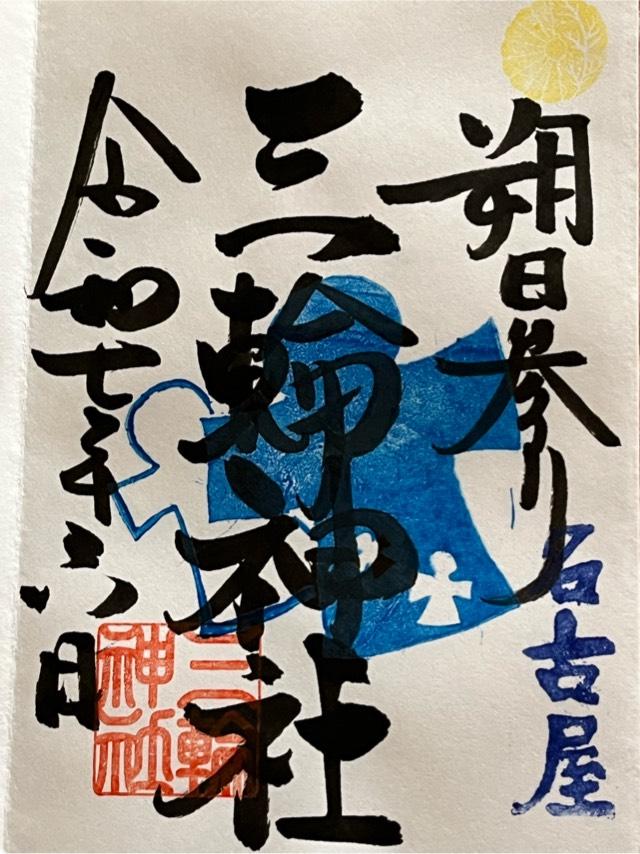 朔日参り
名古屋
三輪神社
令和七年六月
三輪
神社